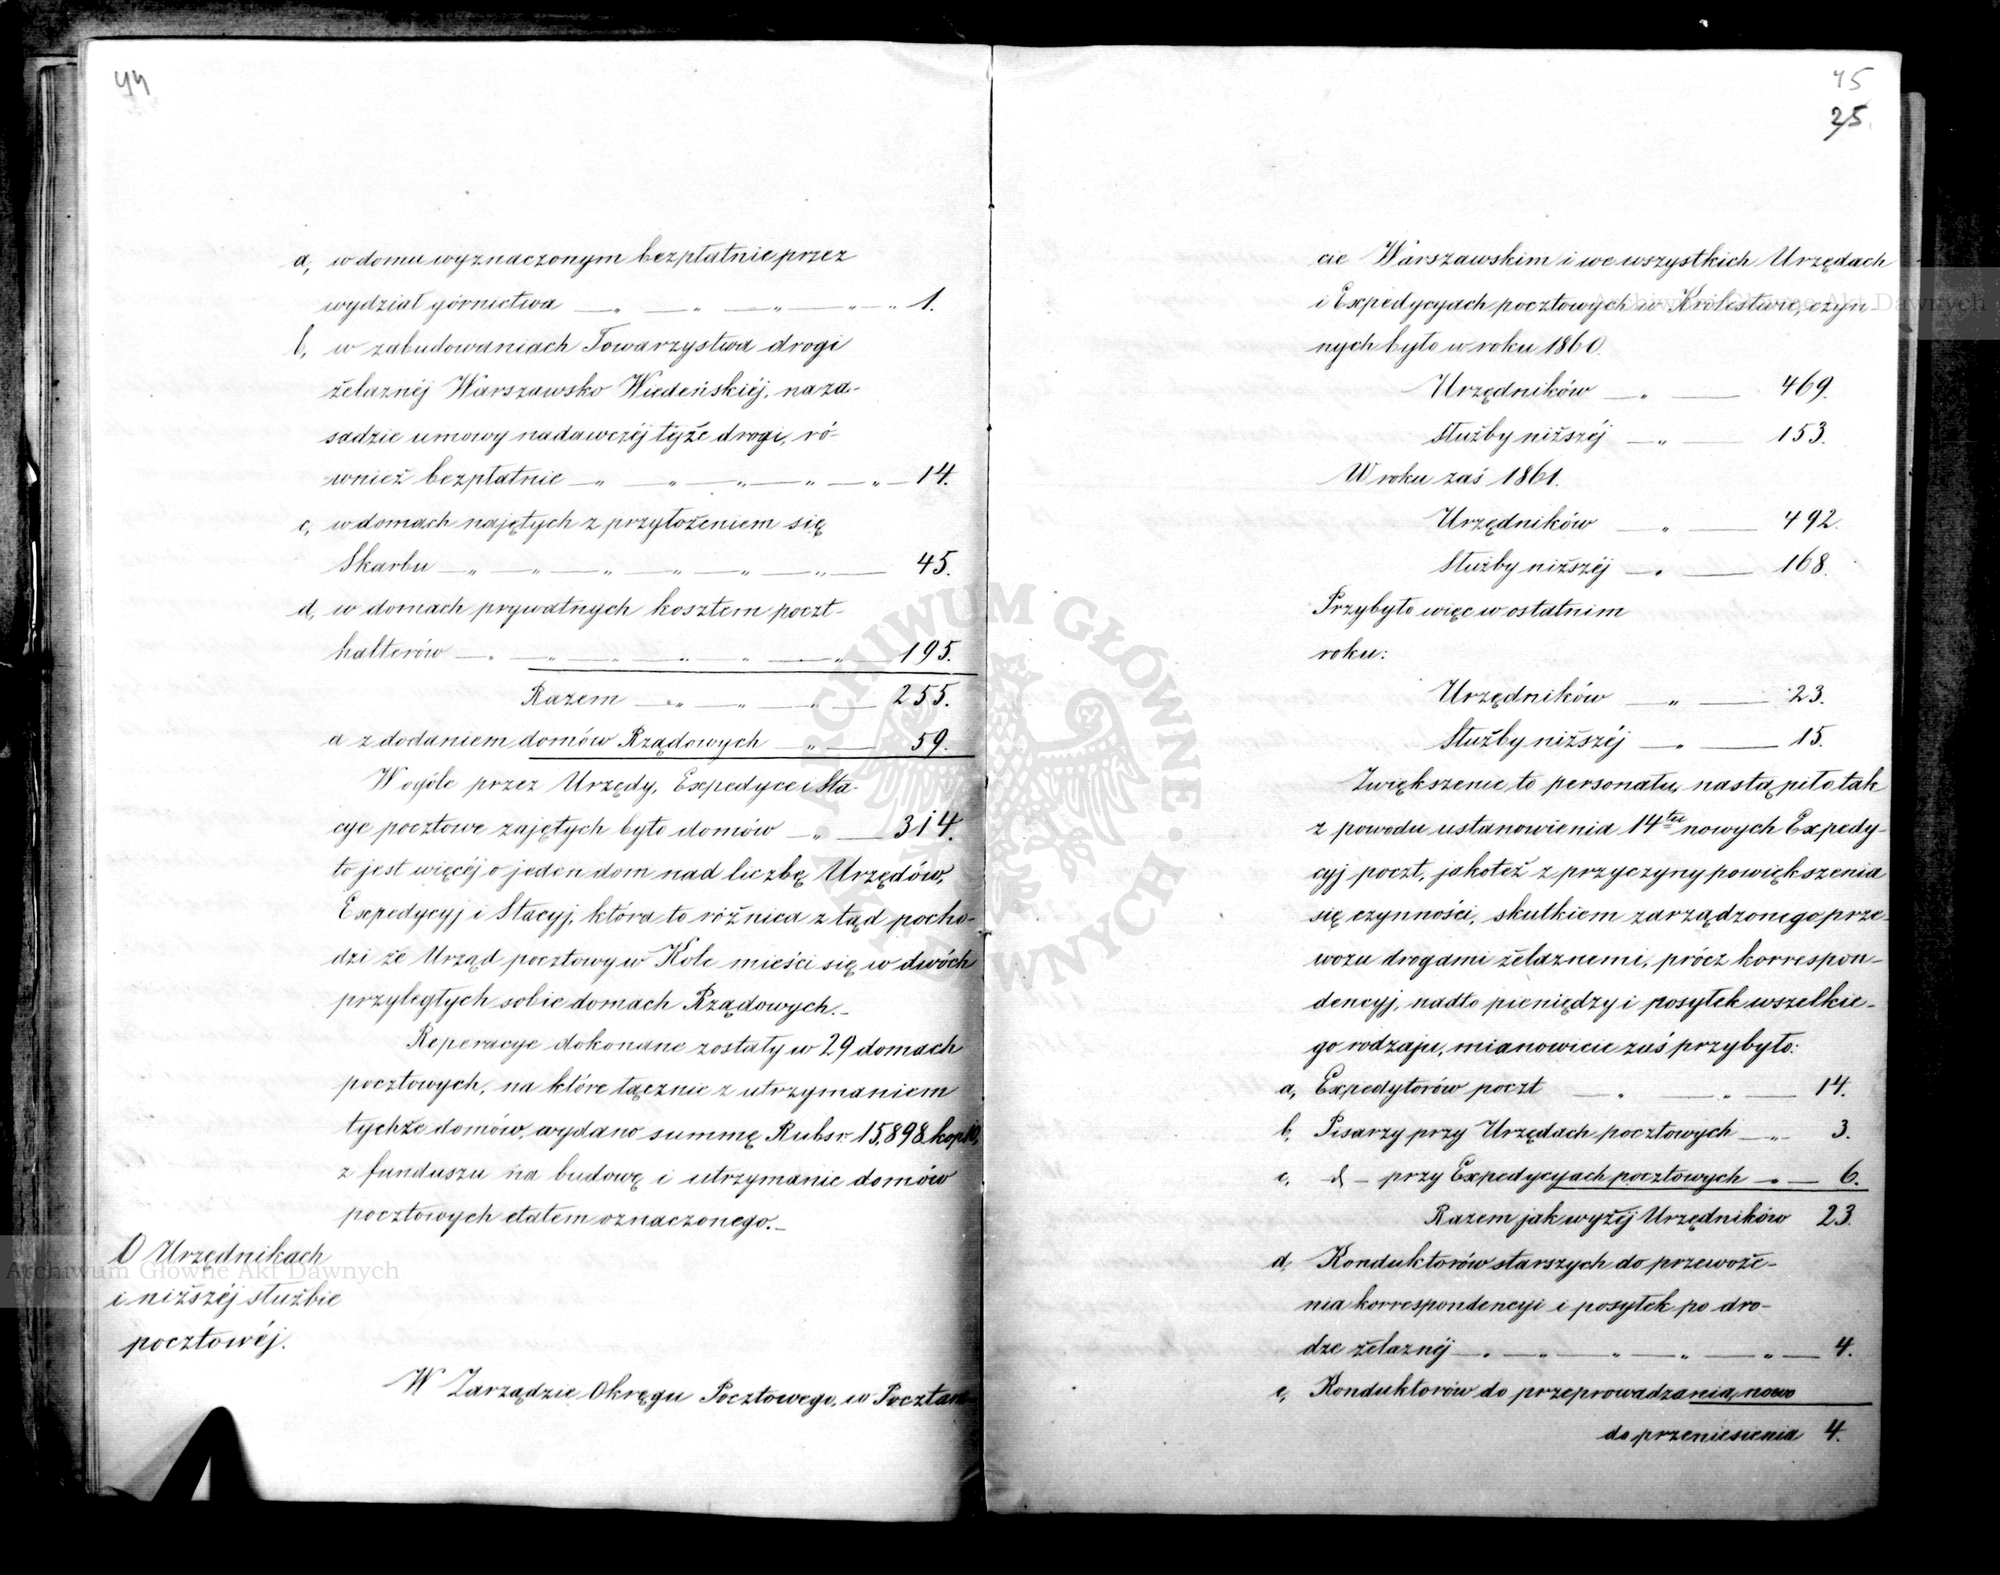 44
a, w domu wyznaczonym bezpłatnie przez
wydział górnictwa — „ — „ — „ — „ „ 1.
b, w zabudowaniach Towarzystwa drogi
żelaznéj Warszawsko Wiedeńskiéj, na za-
sadzie umowy nadawczéj téjże drogi, ró-
wnież bezpłatnie — „ — „ — „ — „ — „ — 14.
c, w domach najętych z przyłożeniem się
Skarbu — „ — „ — „ — „ — „ — „ — 45.
d, w domach prywatnych kosztem poczt-
halterów — „ — „ — „ — „ — „ — 195.
Razem — „ — „ — „ — 255.
a z dodaniem domów Rządowych — „ — 59.
W ogóle przez Urzędy, Expedyce i Sta-
cye pocztowe zajętych było domów — „ — 314.
to jest więcéj o jeden dom nad liczbę Urzędów,
Expedycyj i Stacyj, która to różnica z tąd pocho-
dzi że Urząd pocztowy w Kole mieści się w dwóch
przyległych sobie domach Rządowych.—
Reperacye dokonane zostały w 29 domach
pocztowych, na które łącznie z utrzymaniem
tychże domów, wydano summę Rubsr. 15,898 kop. 10,
z funduszu na budowę i utrzymanie domów
pocztowych etatem oznaczonego.—
O Urzędnikach
i niższéj służbie
pocztowéj.
W Zarządzie Okręgu Pocztowego, w Pocztam-
45
25.
cie Warszawskim i we wszystkich Urzędach
i Expedycyach pocztowych w Królestwie, czyn-
nych było w roku 1860.
Urzędników — „ — 469.
Służby niższéj — „ — 153.
W roku zaś 1861.
Urzędników — „ — 492.
Służby niższéj — „ — 168.
Przybyło więc w ostatnim
roku:
Urzędników — „ — 23.
Służby niższéj — „ — 15.
Zwiększenie to personału, nastąpiło tak
z powodu ustanowienia 14tu nowych Expedy-
cyj poczt, jakoteż z przyczyny powiększenia
się czynności, skutkiem zarządzonego prze-
wozu drogami żelaznemi, prócz korrespon-
dencyj, nadto pieniędzy i posyłek wszelkie-
go rodzaju, mianowicie zaś przybyło:
a, Expedytorów poczt — „ — „ — 14.
b, Pisarzy przy Urzędach pocztowych — „ — 3.
c, — d° — przy Expedycyach pocztowych — „ — 6.
Razem jak wyżéj Urzędników 23.
d, Konduktorów starszych do przewoże-
nia korrespondencyi i posyłek po dro-
dze żelaznéj — „ — „ — „ — „ — „ — 4.
e, Konduktorów do przeprowadzania, nowo
do przeniesienia 4.
Archiwum Główne Akt Dawnych
Archiwum Główne Akt Dawnych
ARCHIWUM GŁÓWNE AKT DAWNYCH